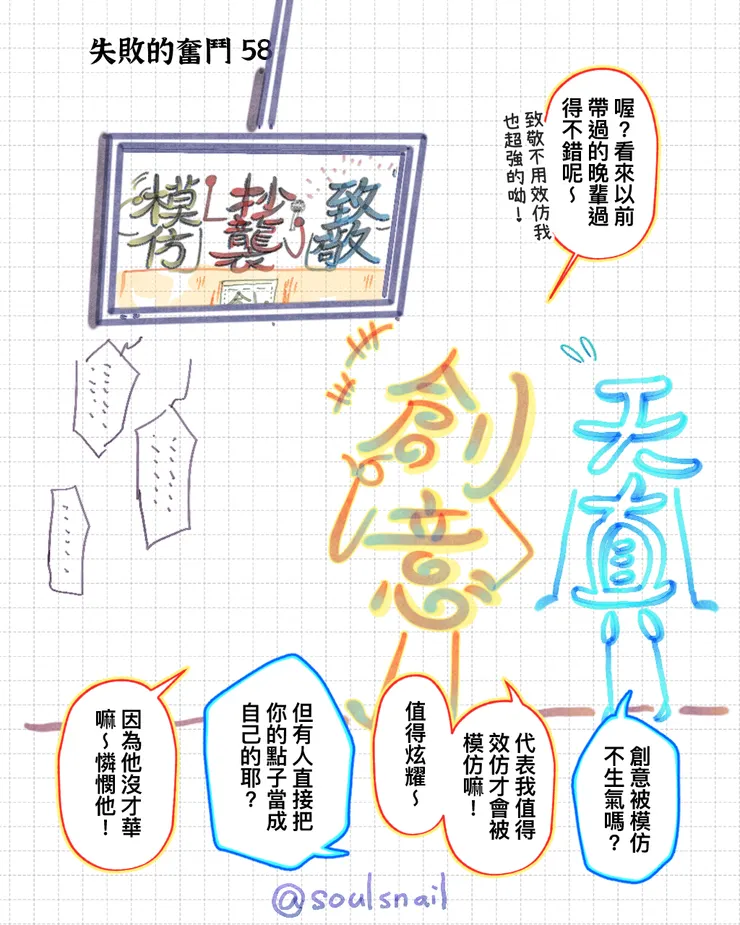 失敗的奮鬥 58
喔？看來以前
帶過的晚輩過
得不錯呢～
致敬不用效仿我
也超強的呦！
致敬
抄襲
模仿
創
創意
天真
創意被模仿
不生氣嗎？
代表我值得
效仿才會被
模仿嘛！
值得炫耀～
但有人直接把
你的點子當成
自己的耶？
因為他沒才華
嘛～憐憫他！
@soulsnail